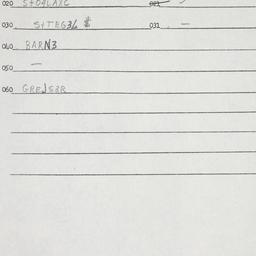 020 STO4LAXC 021 -
030 STTEG3L $ 031 -
040 BARN3
050 -
060 GREJS3R